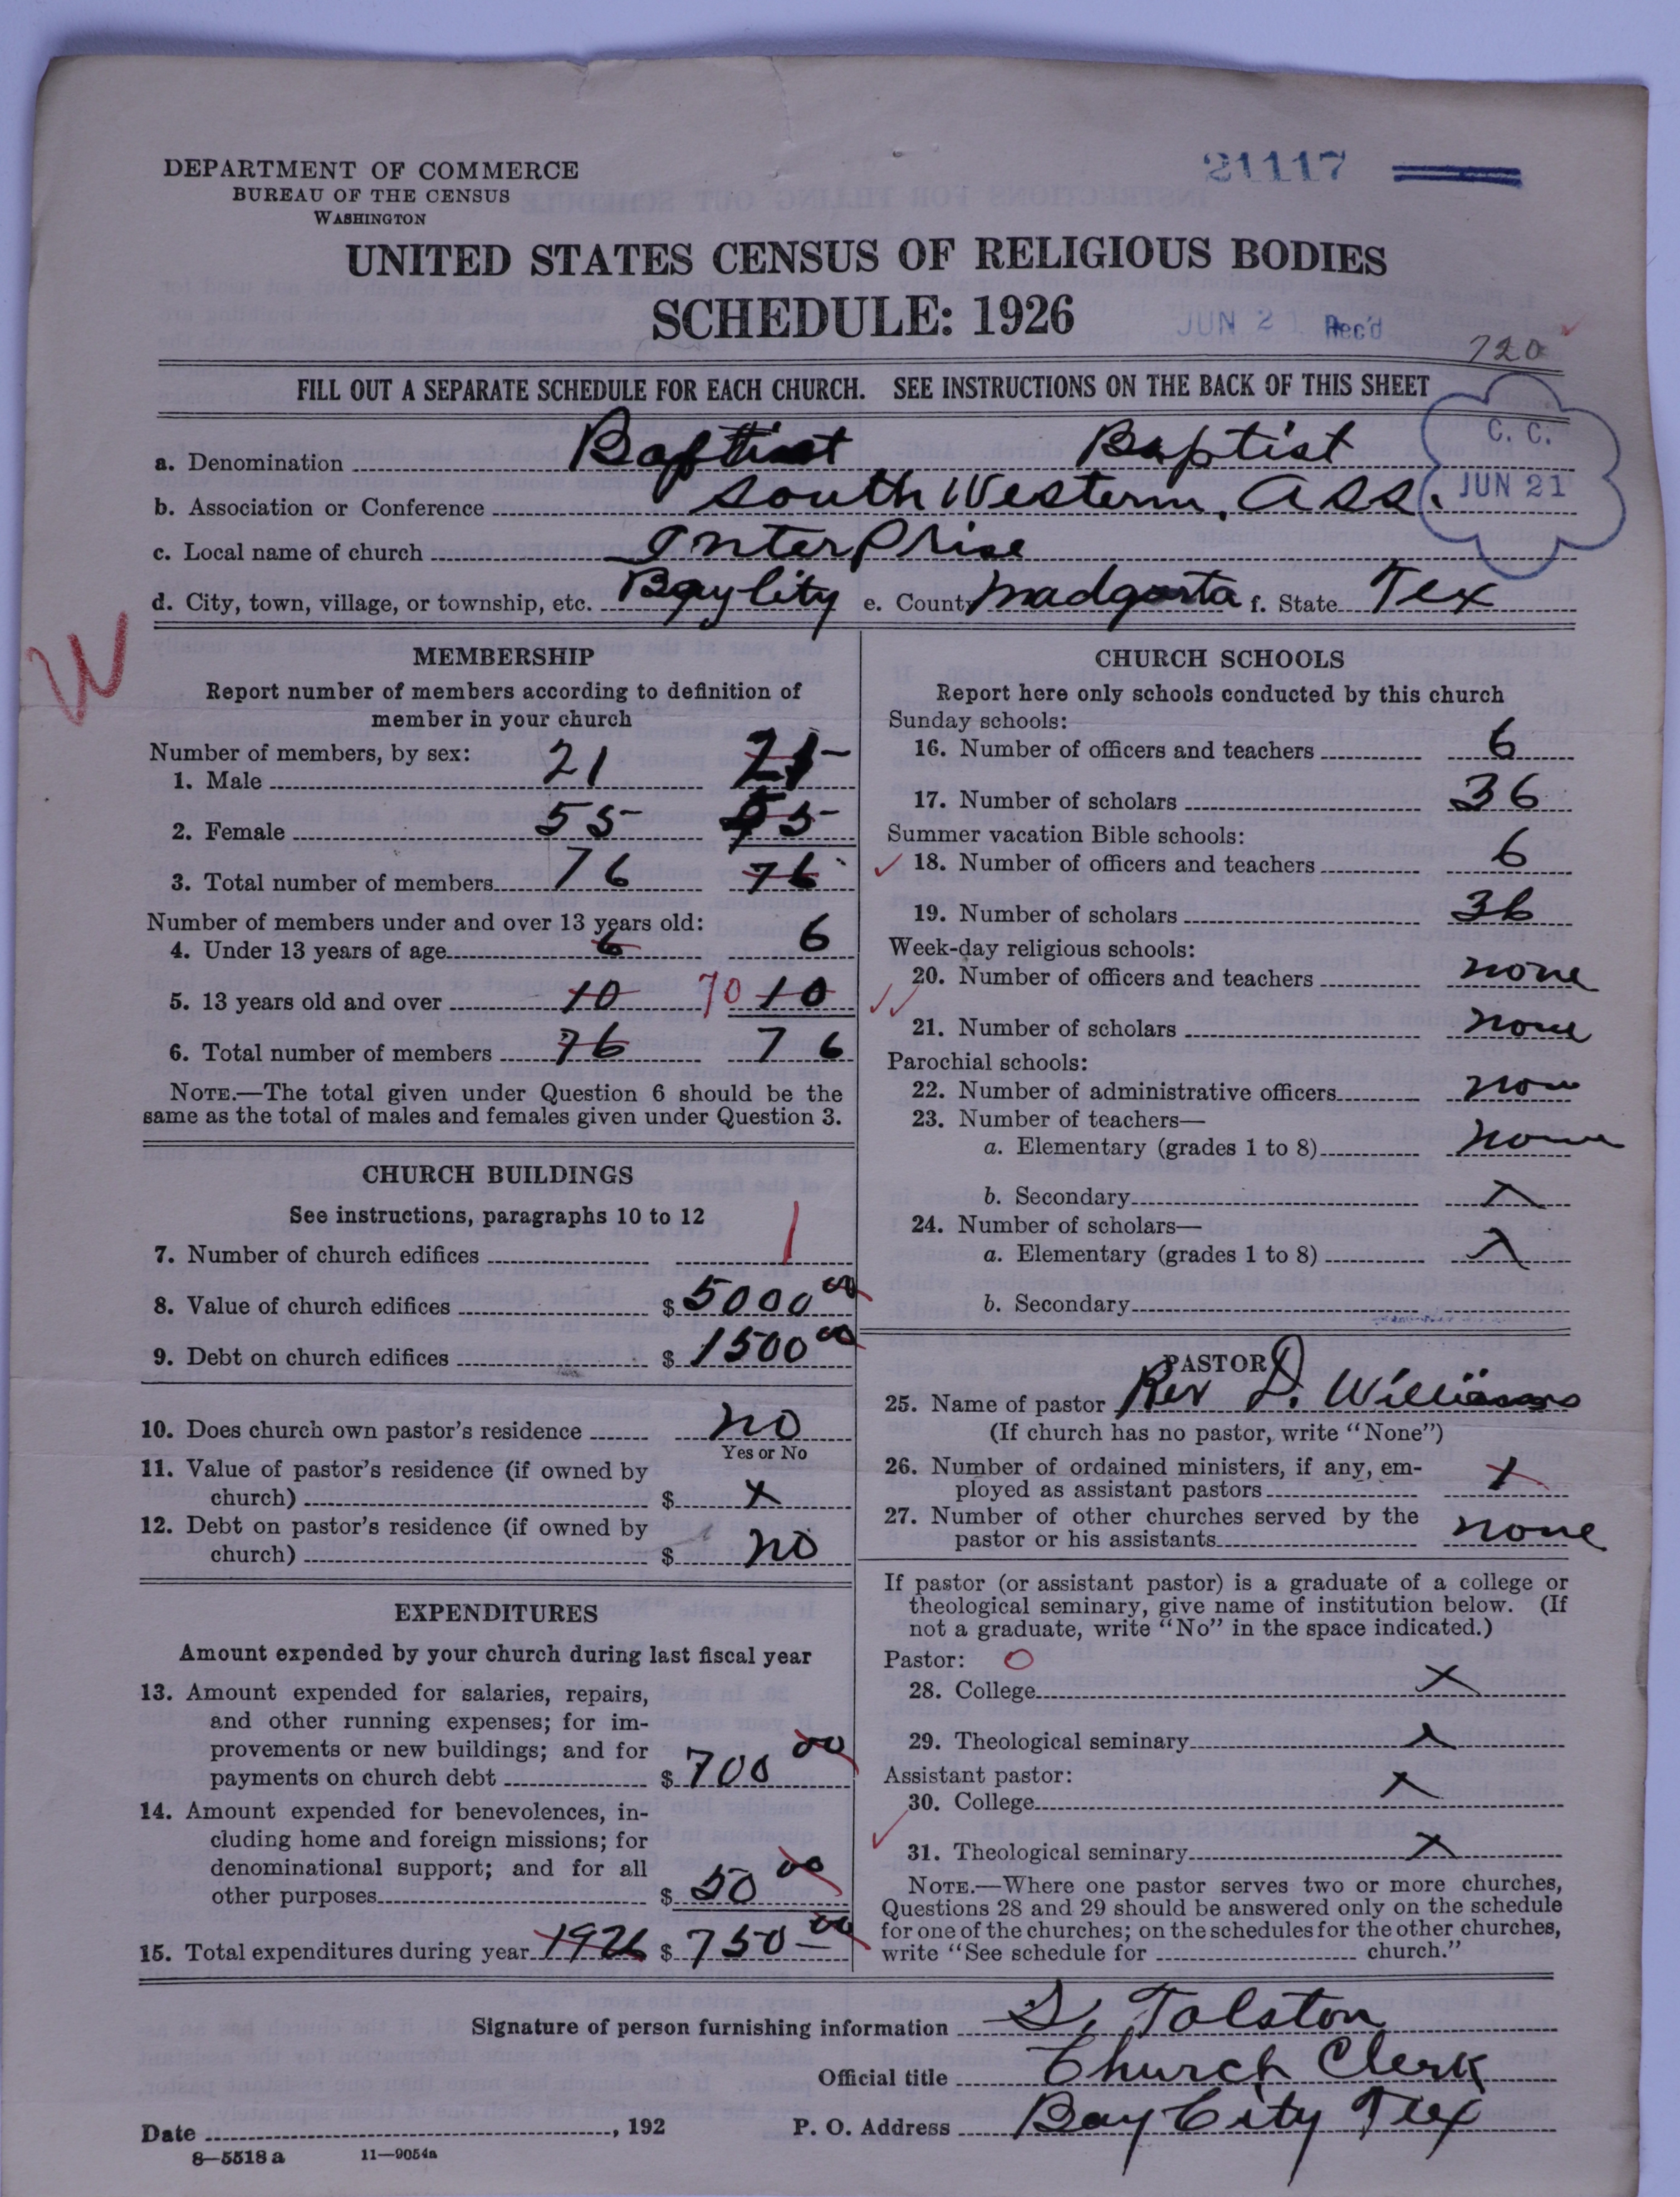 DEPARTMENT OF COMMERCE
BUREAU OF THE CENSUS
WASHINGTON
21117
UNITED STATES CENSUS OF RELIGIOUS BODIES
SCHEDULE: 1926
JUN 21 Rec'd
720
FILL OUT A SEPARATE SCHEDULE FOR EACH CHURCH. SEE INSTRUCTIONS ON THE BACK OF THIS SHEET
C. C.
JUN 21
a. Denomination Baptist Baptist
b. Association or Conference South Western. Ass.
c. Local name of church InterPrise
d. City, town, village, or township, etc. Bay City e. County Madgorta f. State Tex
W
MEMBERSHIP
Report number of members according to definition of
member in your church
Number of members, by sex:
1. Male 21 21
2. Female 55 55
3. Total number of members 76 76
Number of members under and over 13 years old:
4. Under 13 years of age 6 6
5. 13 years old and over 10 70 10
6. Total number of members 76 76
NOTE.—The total given under Question 6 should be the
same as the total of males and females given under Question 3.
CHURCH BUILDINGS
See instructions, paragraphs 10 to 12
7. Number of church edifices 1
8. Value of church edifices $ 5000 00
9. Debt on church edifices $ 1500 00
10. Does church own pastor's residence no
Yes or No
11. Value of pastor's residence (if owned by
church) $ x
12. Debt on pastor's residence (if owned by
church) $ no
EXPENDITURES
Amount expended by your church during last fiscal year
13. Amount expended for salaries, repairs,
and other running expenses; for im-
provements or new buildings; and for
payments on church debt $ 700 00
14. Amount expended for benevolences, in-
cluding home and foreign missions; for
denominational support; and for all
other purposes $ 50 00
15. Total expenditures during year 1926 $ 750 00
CHURCH SCHOOLS
Report here only schools conducted by this church
Sunday schools:
16. Number of officers and teachers 6
17. Number of scholars 36
Summer vacation Bible schools:
18. Number of officers and teachers 6
19. Number of scholars 36
Week-day religious schools:
20. Number of officers and teachers none
21. Number of scholars none
Parochial schools:
22. Number of administrative officers non
23. Number of teachers—
a. Elementary (grades 1 to 8) none
b. Secondary x
24. Number of scholars—
a. Elementary (grades 1 to 8) x
b. Secondary
PASTOR
25. Name of pastor Rev D. Williams
(If church has no pastor, write "None")
26. Number of ordained ministers, if any, em-
ployed as assistant pastors 1
27. Number of other churches served by the
pastor or his assistants none
If pastor (or assistant pastor) is a graduate of a college or
theological seminary, give name of institution below. (If
not a graduate, write "No" in the space indicated.)
Pastor: O
28. College x
29. Theological seminary x
Assistant pastor:
30. College x
31. Theological seminary x
NOTE.—Where one pastor serves two or more churches,
Questions 28 and 29 should be answered only on the schedule
for one of the churches; on the schedules for the other churches,
write "See schedule for church."
Signature of person furnishing information S. Tolston
Official title Church Clerk
Date , 192 P. O. Address Bay City Tex
8—5518 a 11—9054a